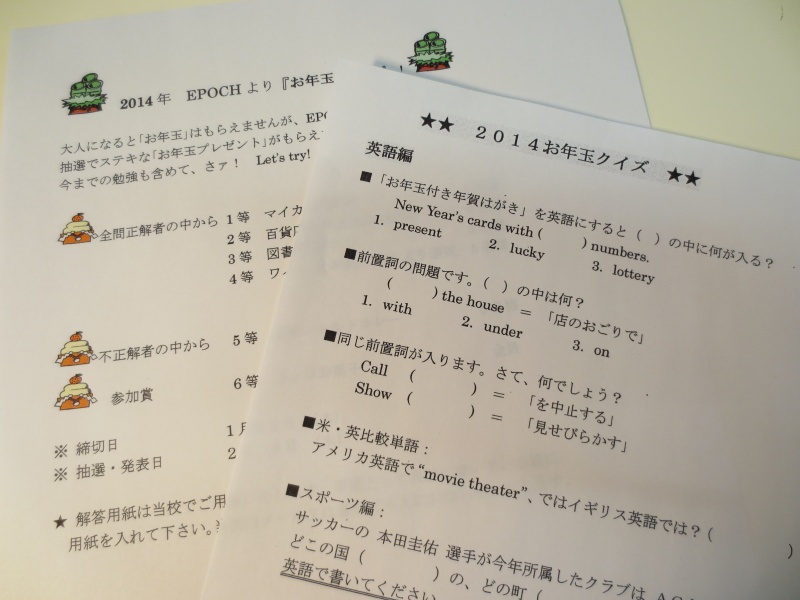 2014年 EPOCHより『お年玉
大人になると「お年玉」はもらえませんが、EPO
抽選でステキな「お年玉プレゼント」がもらえ
今までの勉強も含めて、さァ! Let's try!
全問正解者の中から 1等 マイカ
2等 百貨
3等 図書
4等 ワ
不正解者の中から 5等
参加賞 6等
※ 締切日 1月
※ 抽選・発表日 2
★ 解答用紙は当校でご用
用紙を入れて下さい。
★★ 2014お年玉クイズ ★★
英語編
■「お年玉付き年賀はがき」を英語にすると( )の中に何が入る?
New Year's cards with ( ) numbers.
1. present 2. lucky 3. lottery
■前置詞の問題です。( )の中は何?
( ) the house = 「店のおごりで」
1. with 2. under 3. on
■同じ前置詞が入ります。さて、何でしょう?
Call ( ) = 「を中止する」
Show ( ) = 「見せびらかす」
■米・英比較単語:
アメリカ英語で"movie theater"、ではイギリス英語では?( )
■スポーツ編:
サッカーの 本田圭佑 選手が今年所属したクラブは
どこの国( )の、どの町(
英語で書いてください